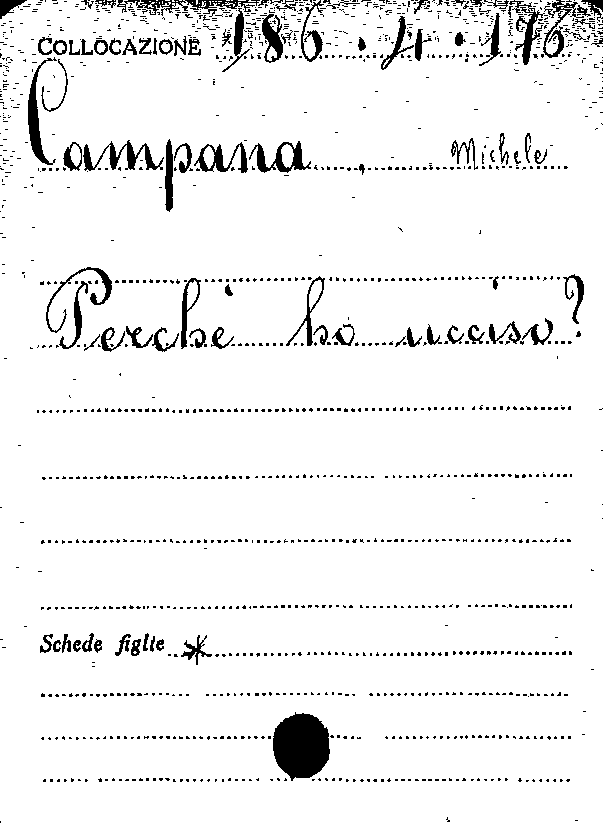 COLLOCAZIONE *186.4.176
Campana, Michele
Perché ho ucciso?
Schede figlie *